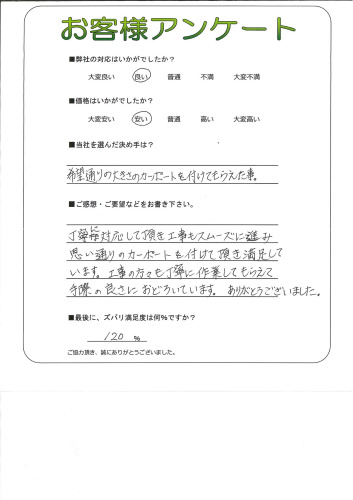 お客様アンケート
■弊社の対応はいかがでしたか?
大変良い 良い 普通 不満 大変不満
■価格はいかがでしたか?
大変安い 安い 普通 高い 大変高い
■当社を選んだ決め手は?
希望通りの大きさのカーポートを付けてもらえた事。
■ご感想・ご要望などをお書き下さい。
丁寧に対応して頂き工事もスムーズに進み
思い通りのカーポートを付けて頂き満足して
います。工事の方々も丁寧に作業してもらえて
手際の良さにおどろいています。ありがとうございました。
■最後に、ズバリ満足度は何%ですか?
120 %
ご協力頂き、誠にありがとうございました。